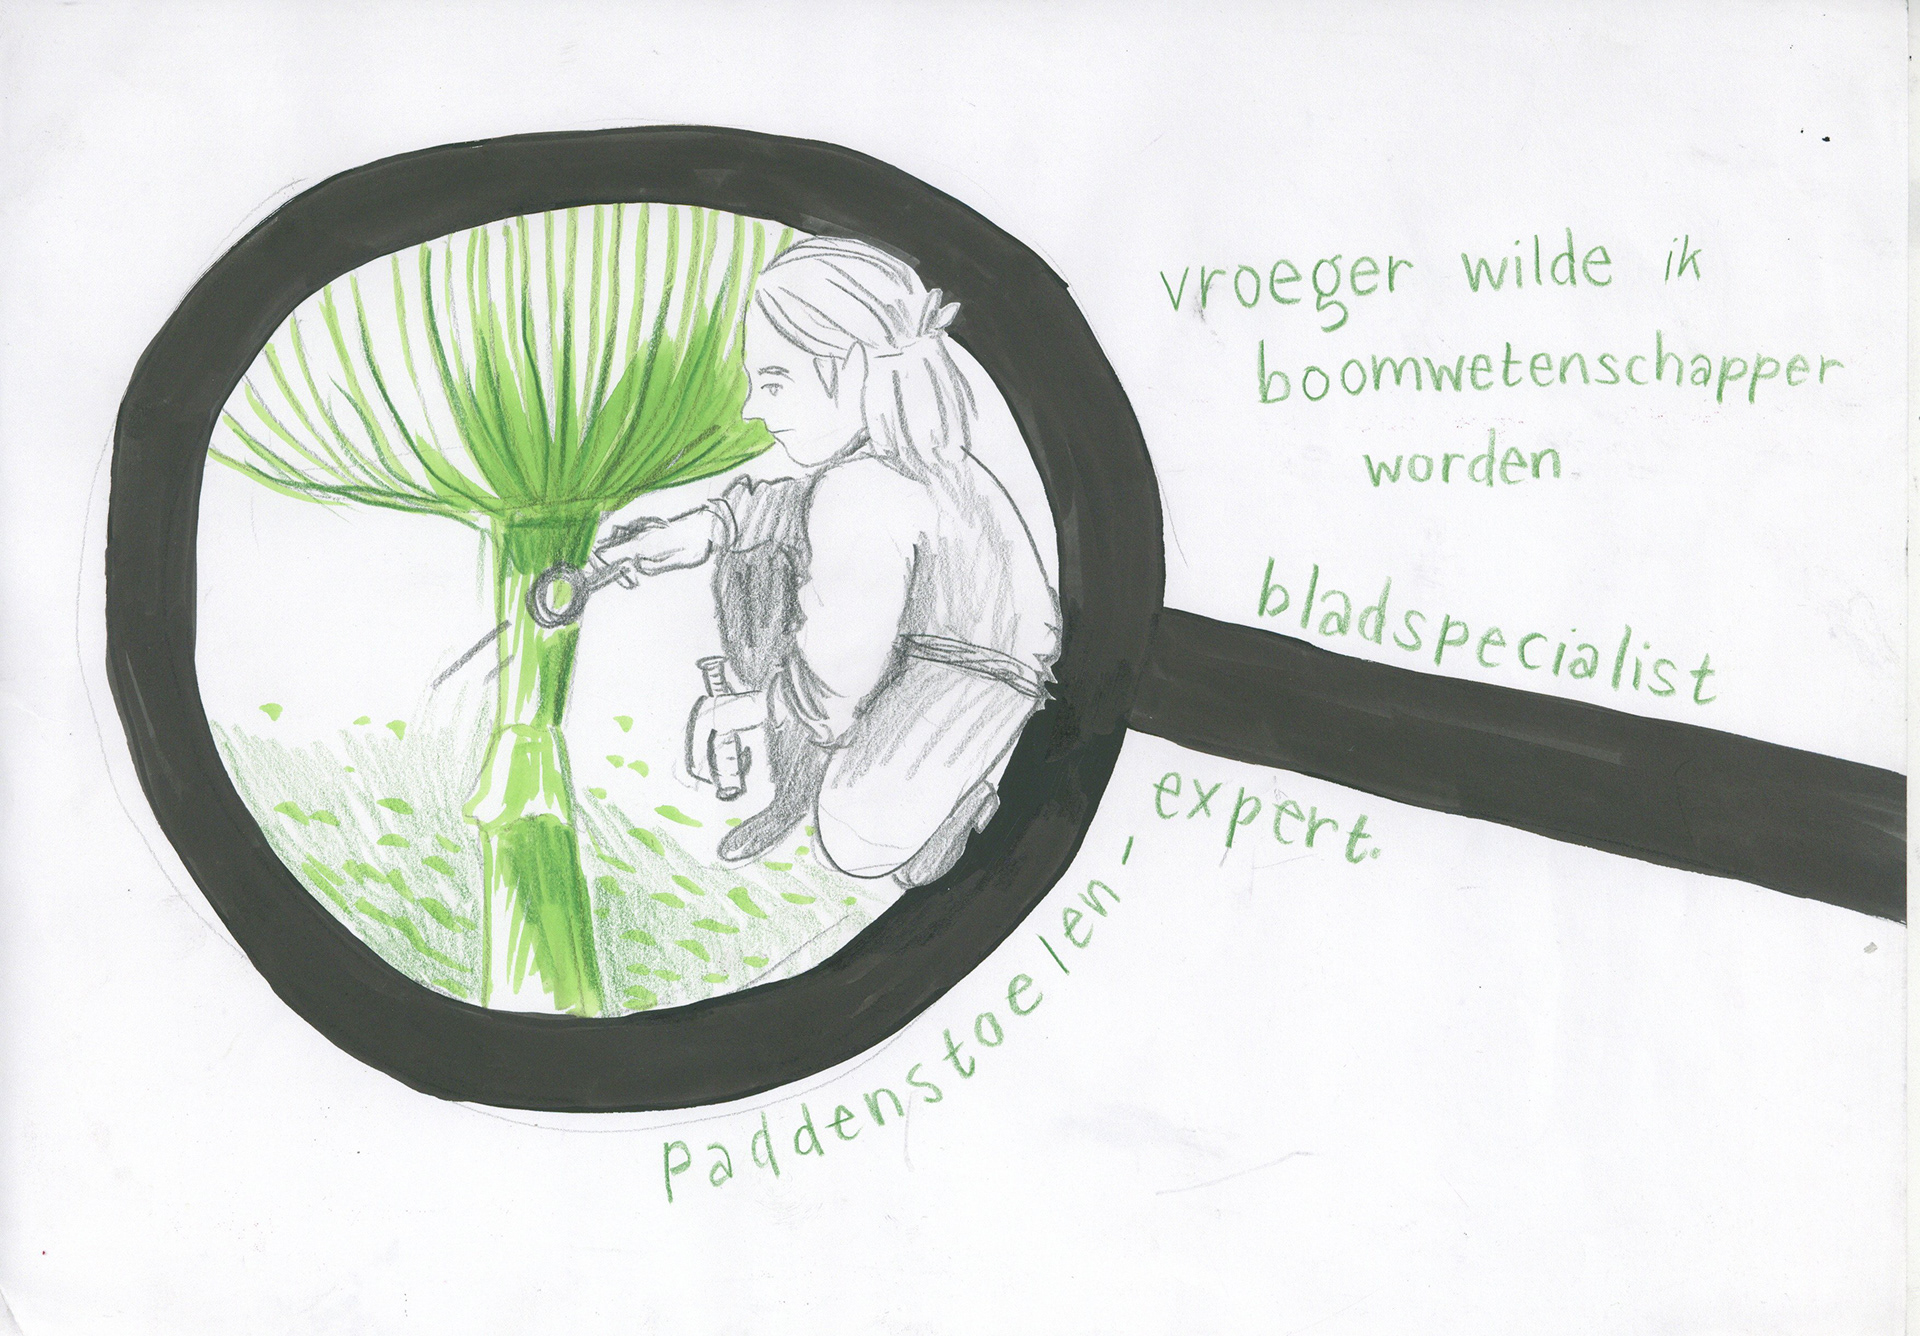 vroeger wilde ik
boomwetenschapper
worden
bladspecialist
paddenstoelen,-
expert.